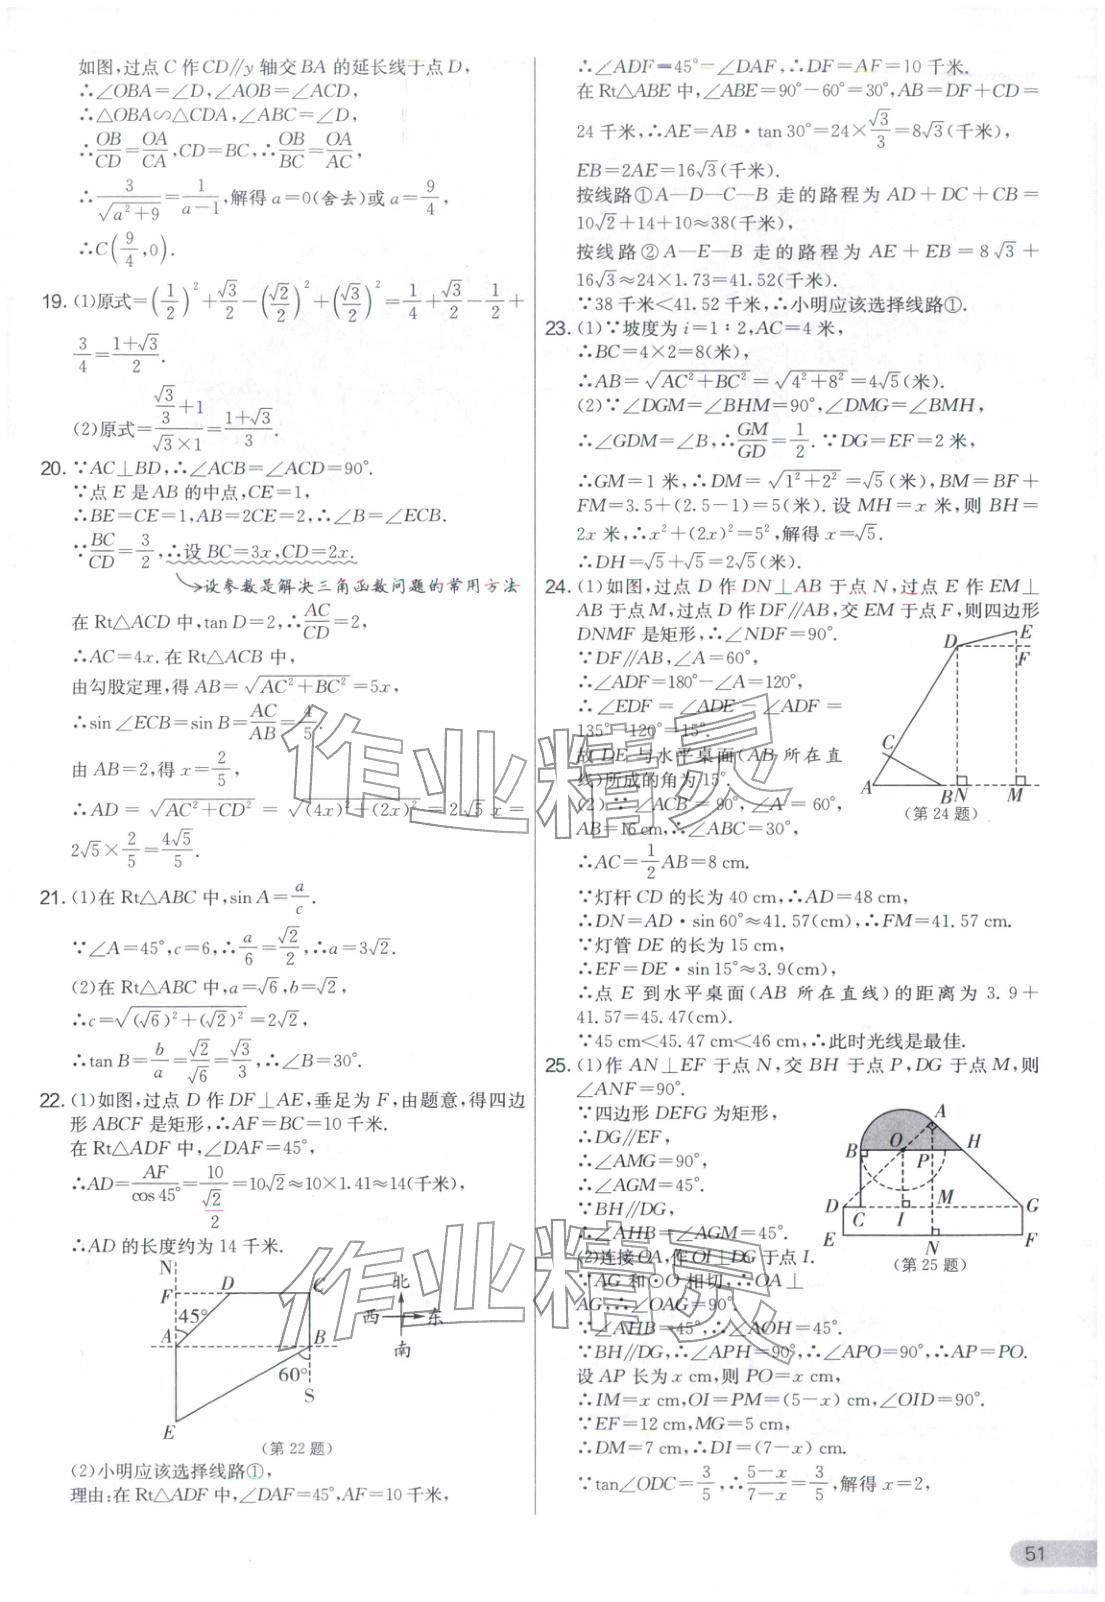 如图,过点C作CD∥y轴交BA的延长线于点D,
∴∠OBA=∠D,∠AOB=∠ACD,
∴△OBA∽△CDA,∠ABC=∠D,
∴OB/CD=OA/CA,CD=BC,∴OB/BC=OA/AC,
∴3/√(a²+9)=1/(a−1),解得a=0(舍去)或a=9/4,
∴C(9/4,0).
19. (1)原式=(1/2)²+√3/2−(√2/2)²+(√3/2)²=1/4+√3/2−1/2+
3/4=(1+√3)/2.
(2)原式=(√3/3+1)/(√3×1)=(1+√3)/3.
20. ∵AC⊥BD,∴∠ACB=∠ACD=90°.
∵点E是AB的中点,CE=1,
∴BE=CE=1,AB=2CE=2,∴∠B=∠ECB.
∵BC/CD=3/2,∴设BC=3x,CD=2x.
设参数是解决三角函数问题的常用方法
在Rt△ACD中,tan D=2,∴AC/CD=2,
∴AC=4x.在Rt△ACB中,
由勾股定理,得AB=√(AC²+BC²)=5x,
∴sin∠ECB=sin B=AC/AB=4/5.
由AB=2,得x=2/5,
∴AD=√(AC²+CD²)=√((4x)²+(2x)²)=2√5x=
2√5×2/5=4√5/5.
21. (1)在Rt△ABC中,sin A=a/c.
∵∠A=45°,c=6,∴a/6=√2/2,∴a=3√2.
(2)在Rt△ABC中,a=√6,b=√2,
∴c=√((√6)²+(√2)²)=2√2,
∴tan B=b/a=√2/√6=√3/3,∴∠B=30°.
22. (1)如图,过点D作DF⊥AE,垂足为F,由题意,得四边
形ABCF是矩形,∴AF=BC=10千米.
在Rt△ADF中,∠DAF=45°,
∴AD=AF/cos 45°=10/(√2/2)=10√2≈10×1.41≈14(千米),
∴AD的长度约为14千米.
N
F D C
45°
A B
60°
S
E
北
西 东
南
(第22题)
(2)小明应该选择线路①,
理由:在Rt△ADF中,∠DAF=45°,AF=10千米,
∴∠ADF=45°=∠DAF,∴DF=AF=10千米.
在Rt△ABE中,∠ABE=90°−60°=30°,AB=DF+CD=
24千米,∴AE=AB·tan 30°=24×√3/3=8√3(千米),
EB=2AE=16√3(千米).
按线路①A—D—C—B走的路程为AD+DC+CB=
10√2+14+10≈38(千米),
按线路②A—E—B走的路程为AE+EB=8√3+
16√3≈24×1.73=41.52(千米).
∵38千米<41.52千米,∴小明应该选择线路①.
23. (1)∵坡度为i=1∶2,AC=4米,
∴BC=4×2=8(米),
∴AB=√(AC²+BC²)=√(4²+8²)=4√5(米).
(2)∵∠DGM=∠BHM=90°,∠DMG=∠BMH,
∴∠GDM=∠B,∴GM/GD=1/2.∵DG=EF=2米,
∴GM=1米,∴DM=√(1²+2²)=√5(米),BM=BF+
FM=3.5+(2.5−1)=5(米).设MH=x米,则BH=
2x米,∴x²+(2x)²=5²,解得x=√5.
∴DH=√5+√5=2√5(米).
24. (1)如图,过点D作DN⊥AB于点N,过点E作EM⊥
AB于点M,过点D作DF∥AB,交EM于点F,则四边形
DNMF是矩形,∴∠NDF=90°.
∵DF∥AB,∠A=60°,
∴∠ADF=180°−∠A=120°,
∴∠EDF=∠ADE−∠ADF=
135°−120°=15°.
故DE与水平桌面(AB所在直
线)所成的角为15°.
(2)∵∠ACB=90°,∠A=60°,
AB=16 cm,∴∠ABC=30°,
∴AC=1/2AB=8 cm.
D E
F
C
A B N M
(第24题)
∵灯杆CD的长为40 cm,∴AD=48 cm,
∴DN=AD·sin 60°≈41.57(cm),∴FM=41.57 cm.
∵灯管DE的长为15 cm,
∴EF=DE·sin 15°≈3.9(cm),
∴点E到水平桌面(AB所在直线)的距离为3.9+
41.57=45.47(cm).
∵45 cm<45.47 cm<46 cm,∴此时光线是最佳.
25. (1)作AN⊥EF于点N,交BH于点P,DG于点M,则
∠ANF=90°.
∵四边形DEFG为矩形,
∴DG∥EF,
∴∠AMG=90°,
∴∠AGM=45°.
∵BH∥DG,
∴∠AHB=∠AGM=45°.
(2)连接OA,作OI⊥DG于点I.
∵AG和⊙O相切,∴OA⊥
AG,∴∠OAG=90°.
A
B O H
P
D M G
C I
E N F
(第25题)
∵∠AHB=45°,∴∠AOH=45°.
∵BH∥DG,∴∠APH=90°,∴∠APO=90°,∴AP=PO.
设AP长为x cm,则PO=x cm,
∴IM=x cm,OI=PM=(5−x) cm,∠OID=90°.
∵EF=12 cm,MG=5 cm,
∴DM=7 cm,∴DI=(7−x) cm.
∵tan∠ODC=3/5,∴(5−x)/(7−x)=3/5,解得x=2,
51
作业精灵
作业精灵